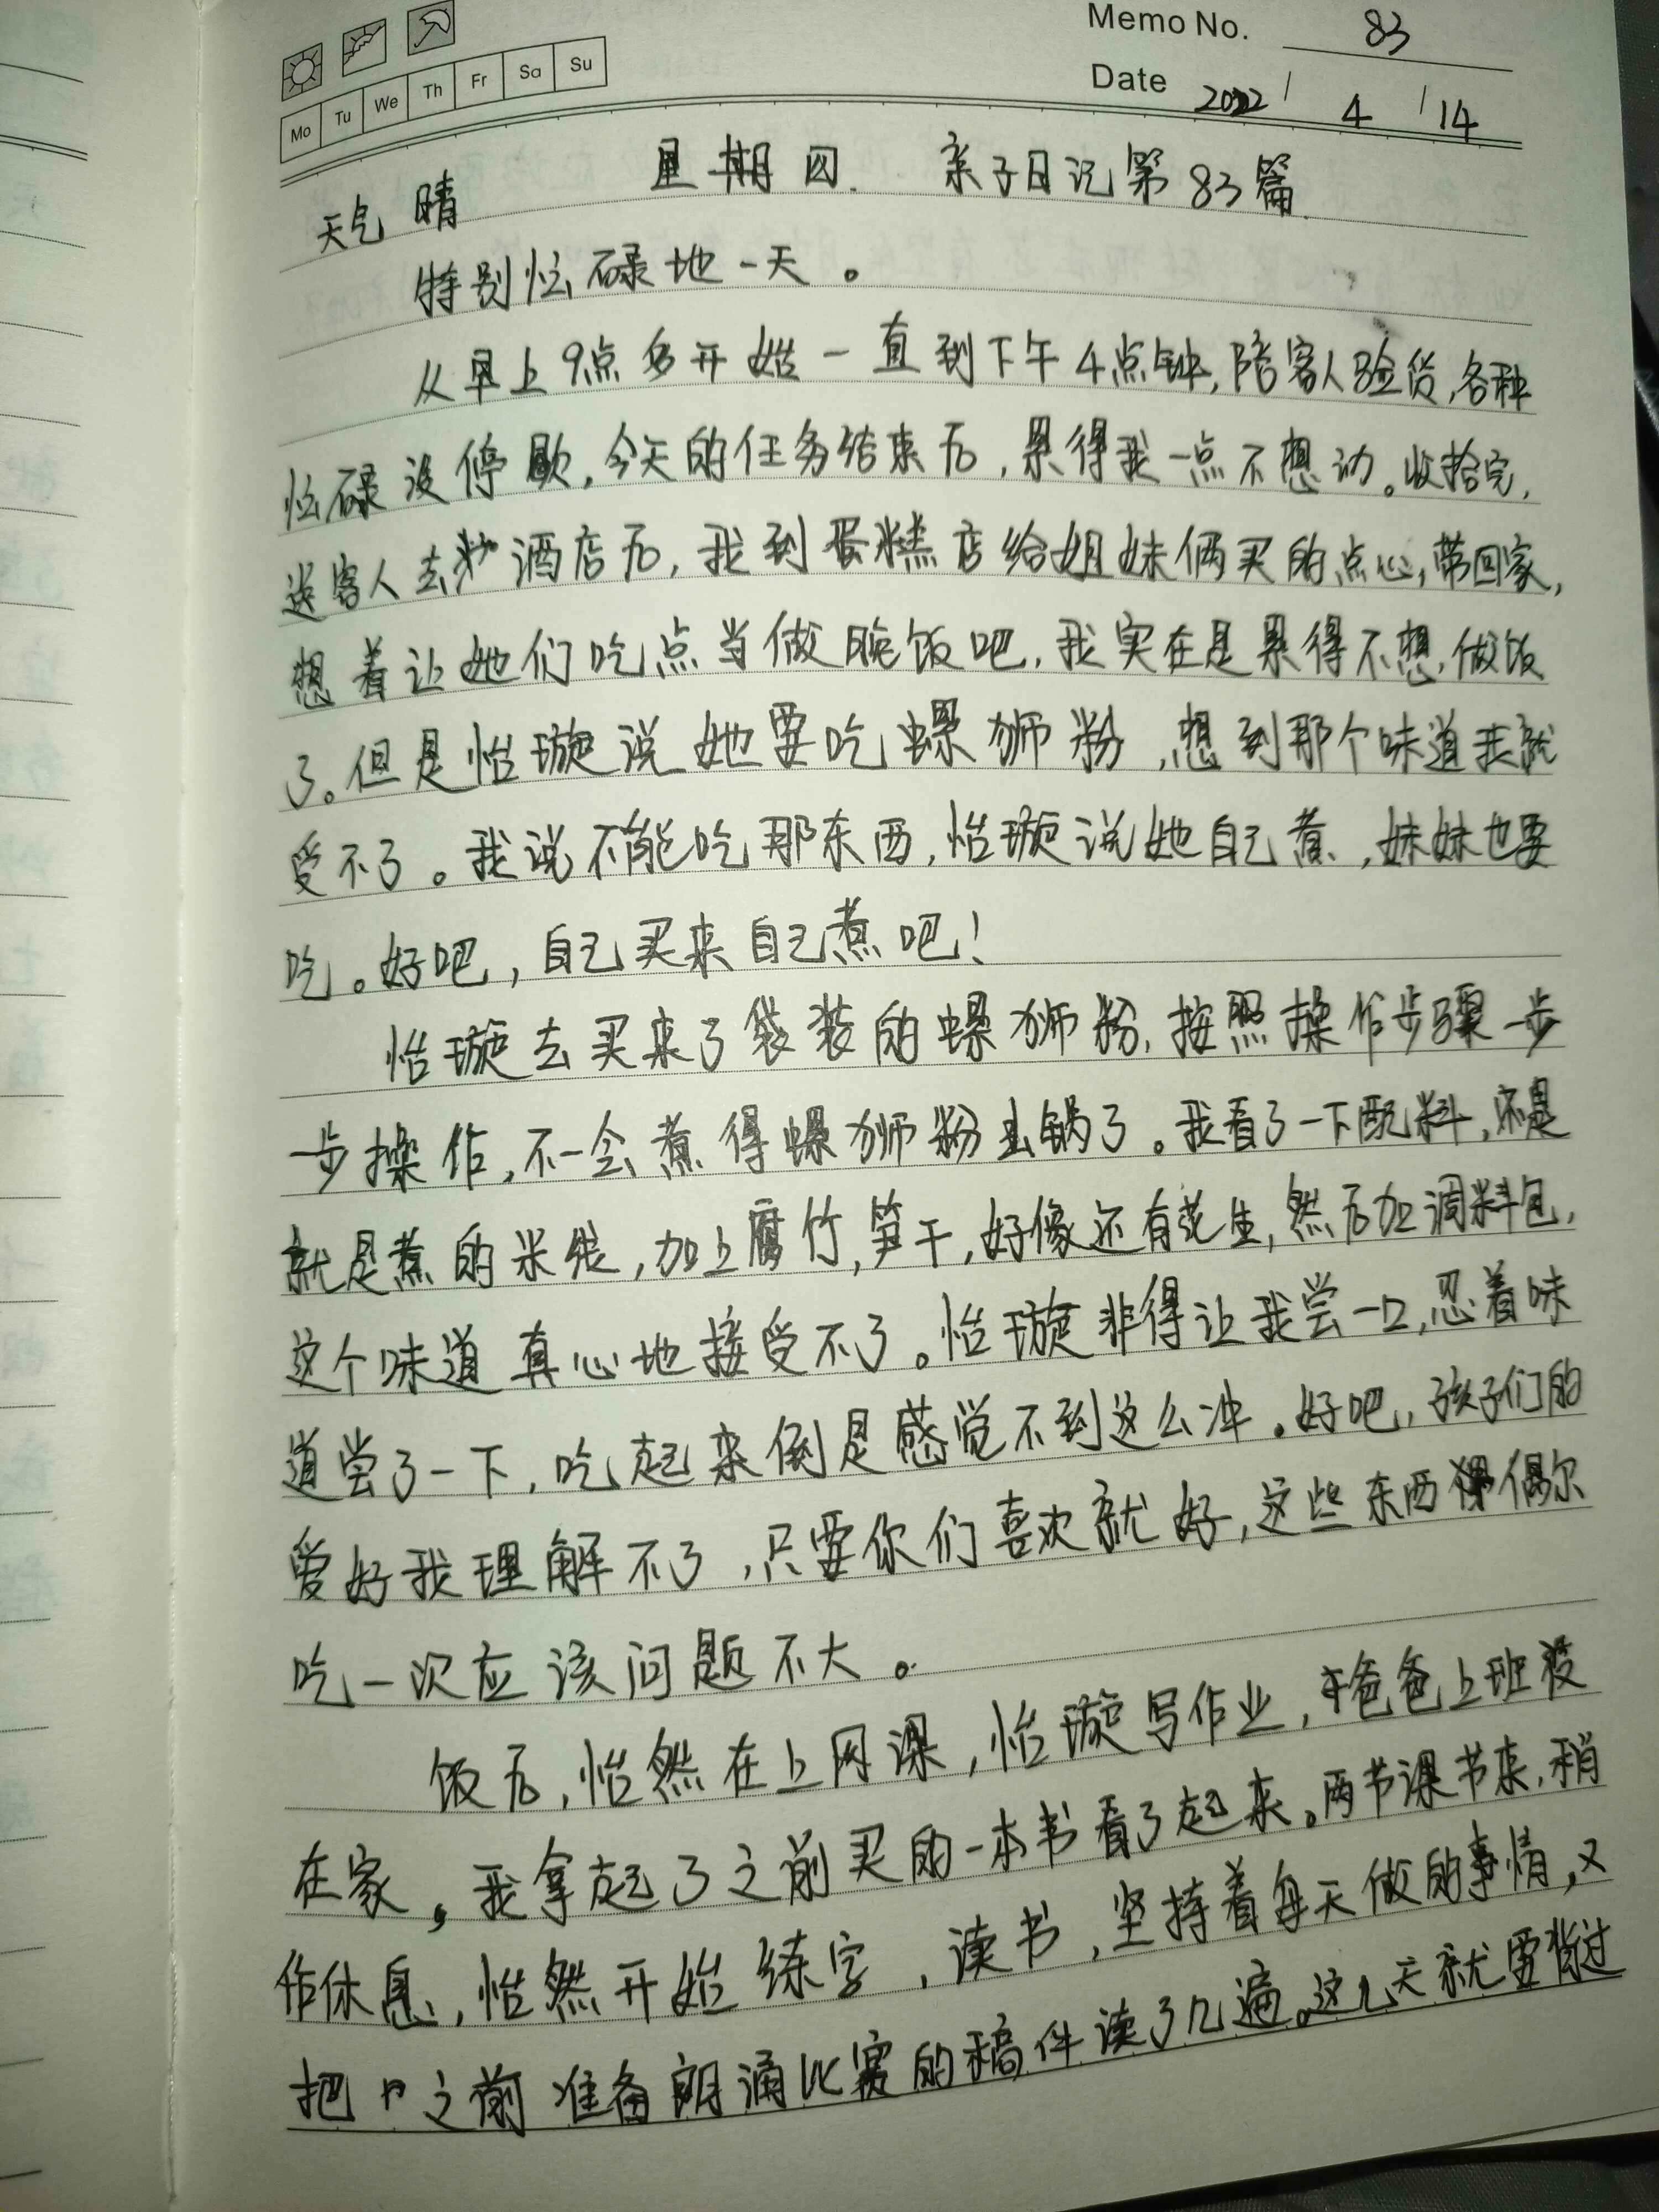 Memo No. 83
Mo Tu We Th Fr Sa Su
Date 2022 / 4 / 14
星期四. 亲子日记第83篇.
天气 晴
特别忙碌地一天。
从早上9点多开始一直到下午4点钟,陪客人验货,各种
忙碌没停歇,今天的任务结束后,累得我一点不想动。收拾完,
送客人去酒店后,我到蛋糕店给姐妹俩买的点心,带回家,
想着让她们吃点当做晚饭吧,我实在是累得不想,做饭
了。但是怡璇说她要吃螺狮粉,想到那个味道我就
受不了。我说不能吃那东西,怡璇说她自己煮,妹妹也要
吃。好吧,自己买来自己煮吧!
怡璇去买来了袋装的螺狮粉,按照操作步骤一步
一步操作,不一会煮得螺狮粉出锅了。我看了一下配料,还是
就是煮的米线,加上腐竹,笋干,好像还有花生,然后加调料包,
这个味道真心地接受不了。怡璇非得让我尝一口,忍着味
道尝了一下,吃起来倒是感觉不到这么冲。好吧,孩子们的
爱好我理解不了,只要你们喜欢就好,这些东西偶尔
吃一次应该问题不大。
饭后,怡然在上网课,怡璇写作业,爸爸上班没
在家,我拿起了之前买的一本书看了起来。两节课节来,稍
作休息,怡然开始练字,读书,坚持着每天做的事情,又
把之前准备朗诵比赛的稿件读了几遍。这几天就要背过